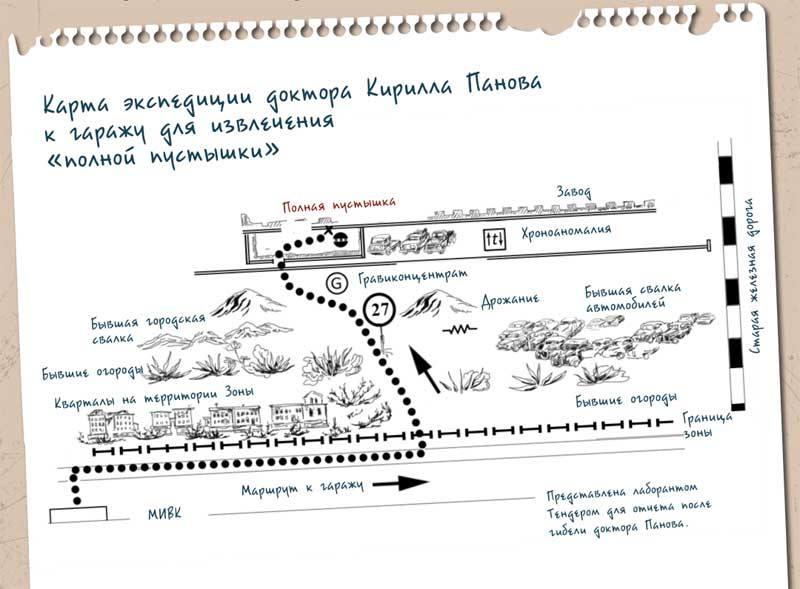 Карта экспедиции доктора Кирилла Панова
к гаражу для извлечения
«полной пустышки»
Полная пустышка
Завод
Хроноаномалия
t
Старая железная дорога
G
Гравиконцентрат
27
Дрожание
Бывшая свалка
автомобилей
Бывшая городская
свалка
Бывшие огороды
Кварталы на территории Зоны
Бывшие огороды
Граница
зоны
Маршрут к гаражу
МИВК
Представлена лаборантом
Тендером для отчета после
гибели доктора Панова.